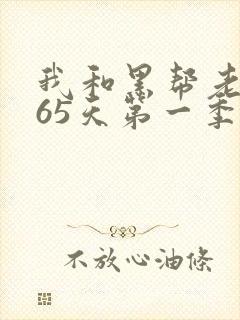 我和黑帮老
65天第一季
不放心油條